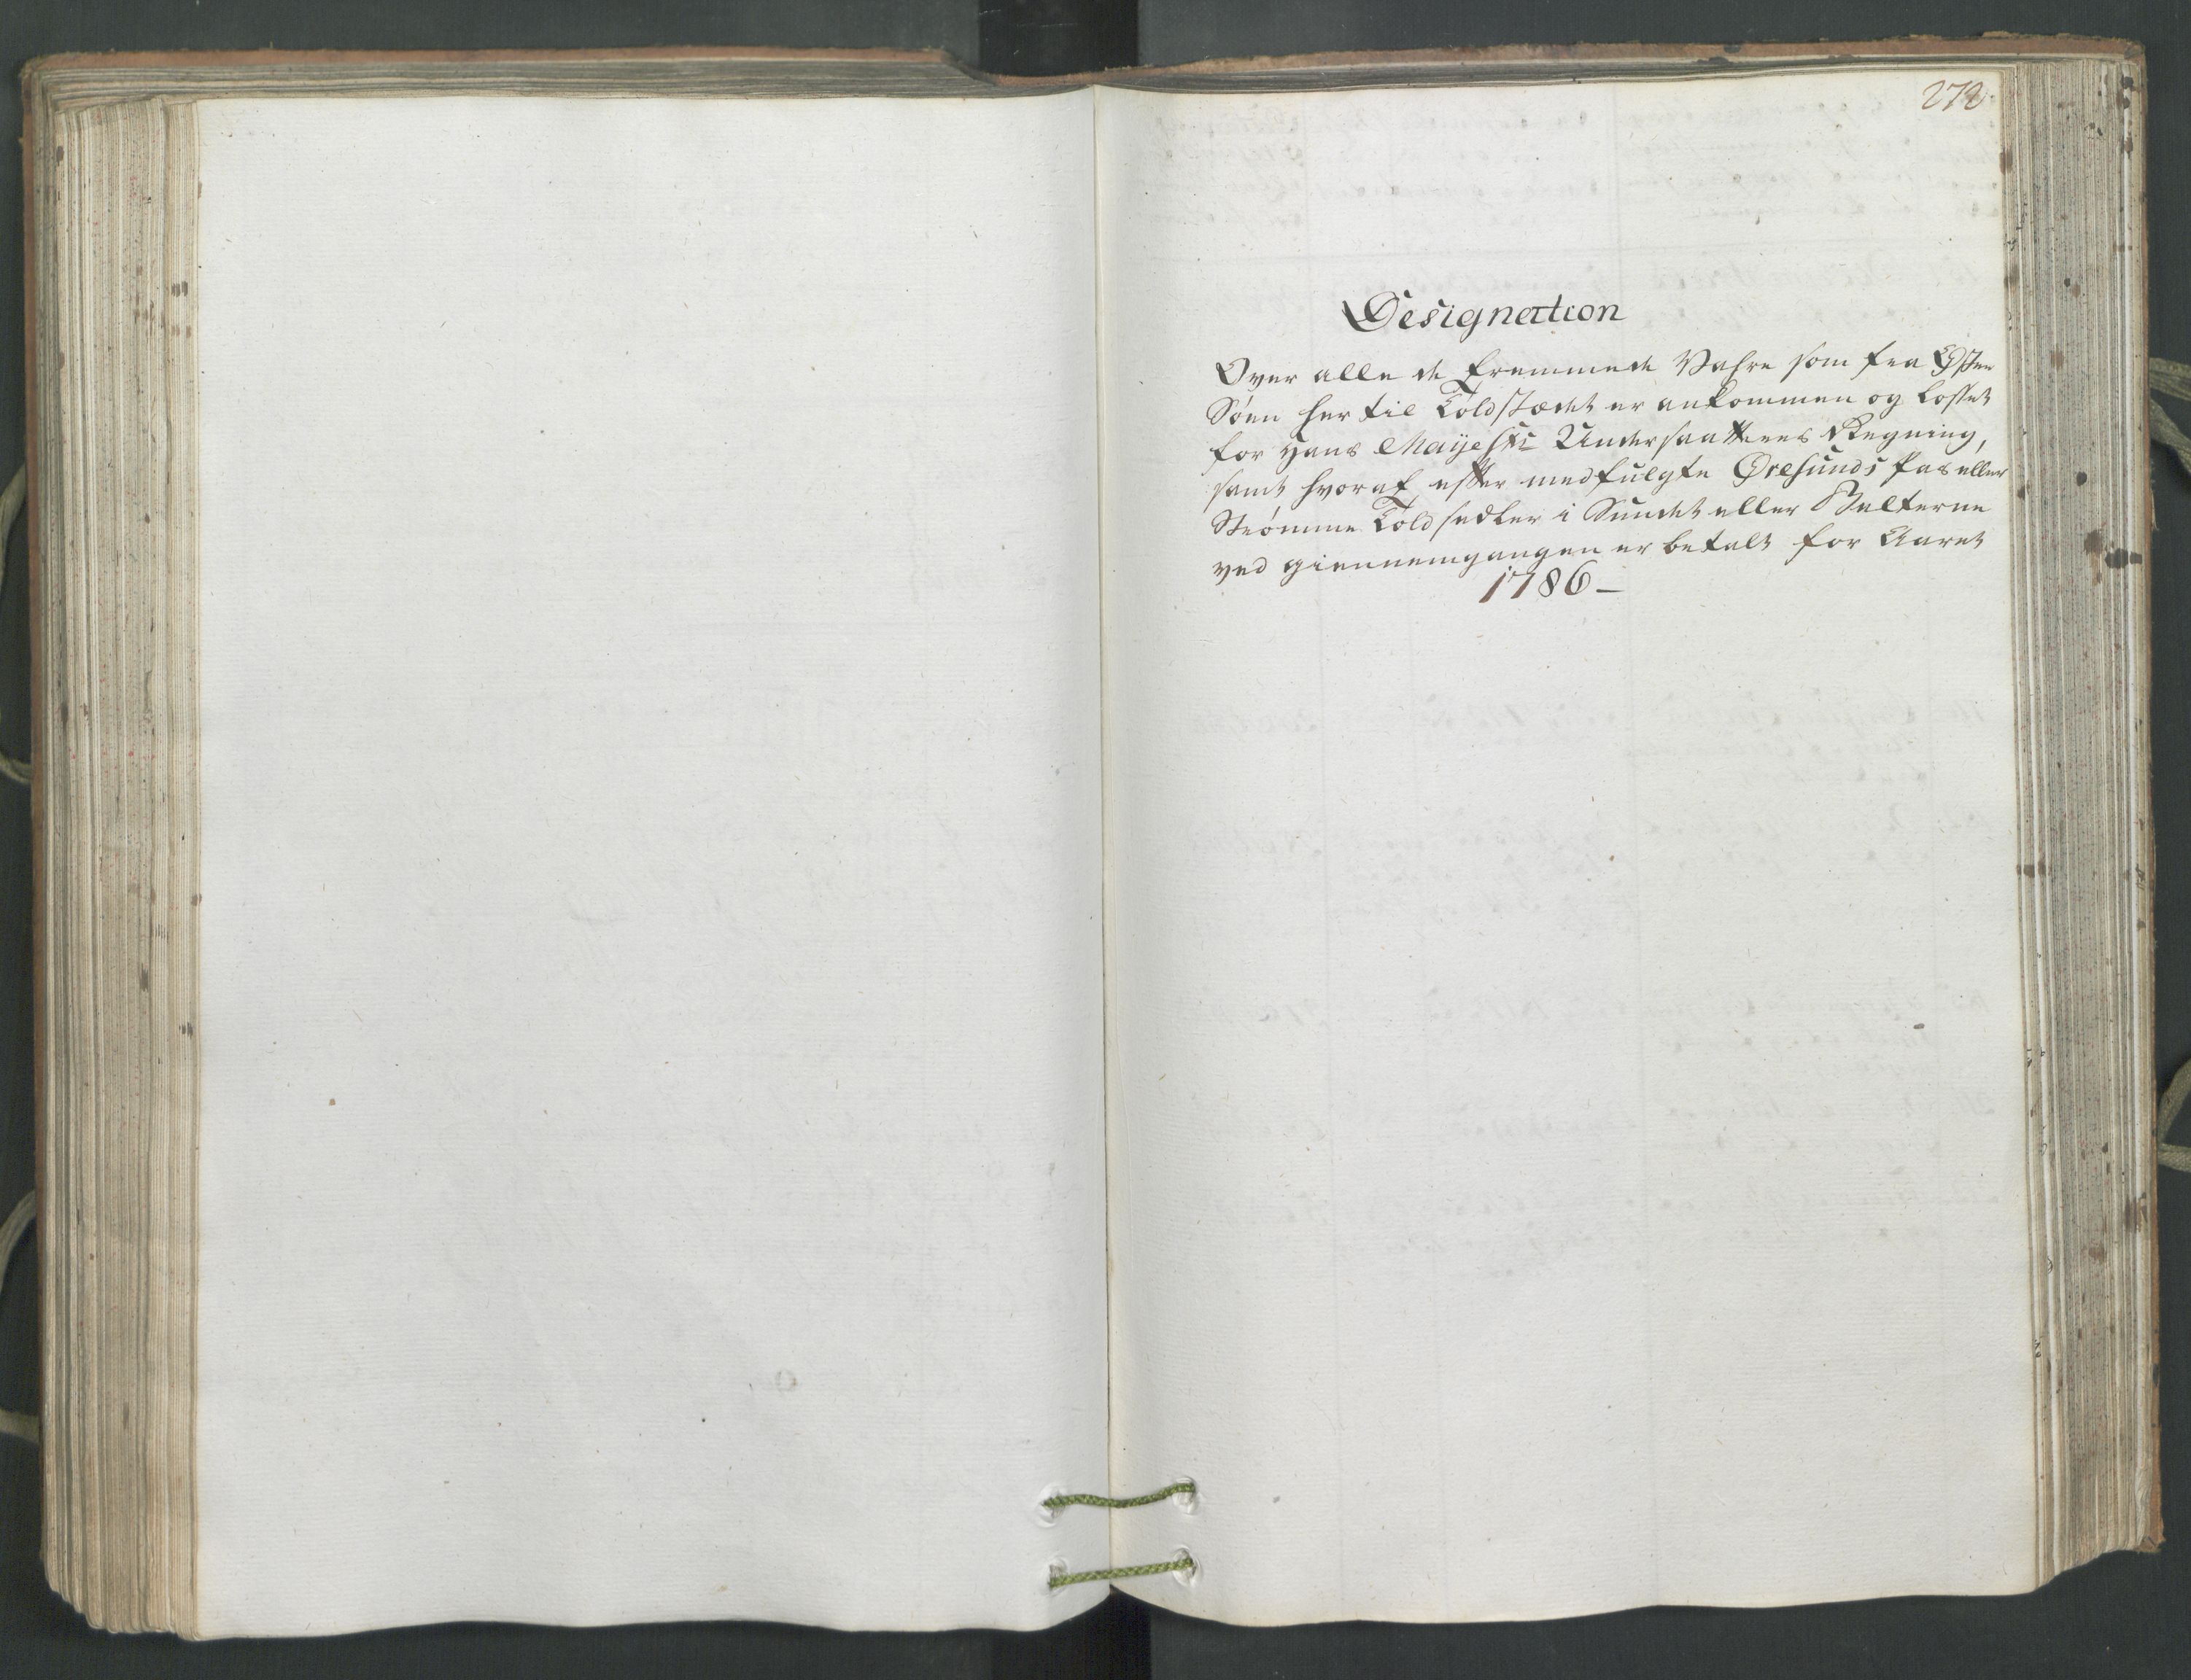 272
Designation
Over alle de fremmede Vahre som fra Øster
Söen her til Toldstædet er ankommen og losset
for Hans Mayesßts Undersaatteres Regning,
samt hvoraf efter medfulgte Øresunds Pas eller
Strömme Toldsedler i Sundet eller Belterne
ved giennemgangen er betalt for Aaret
1786 –